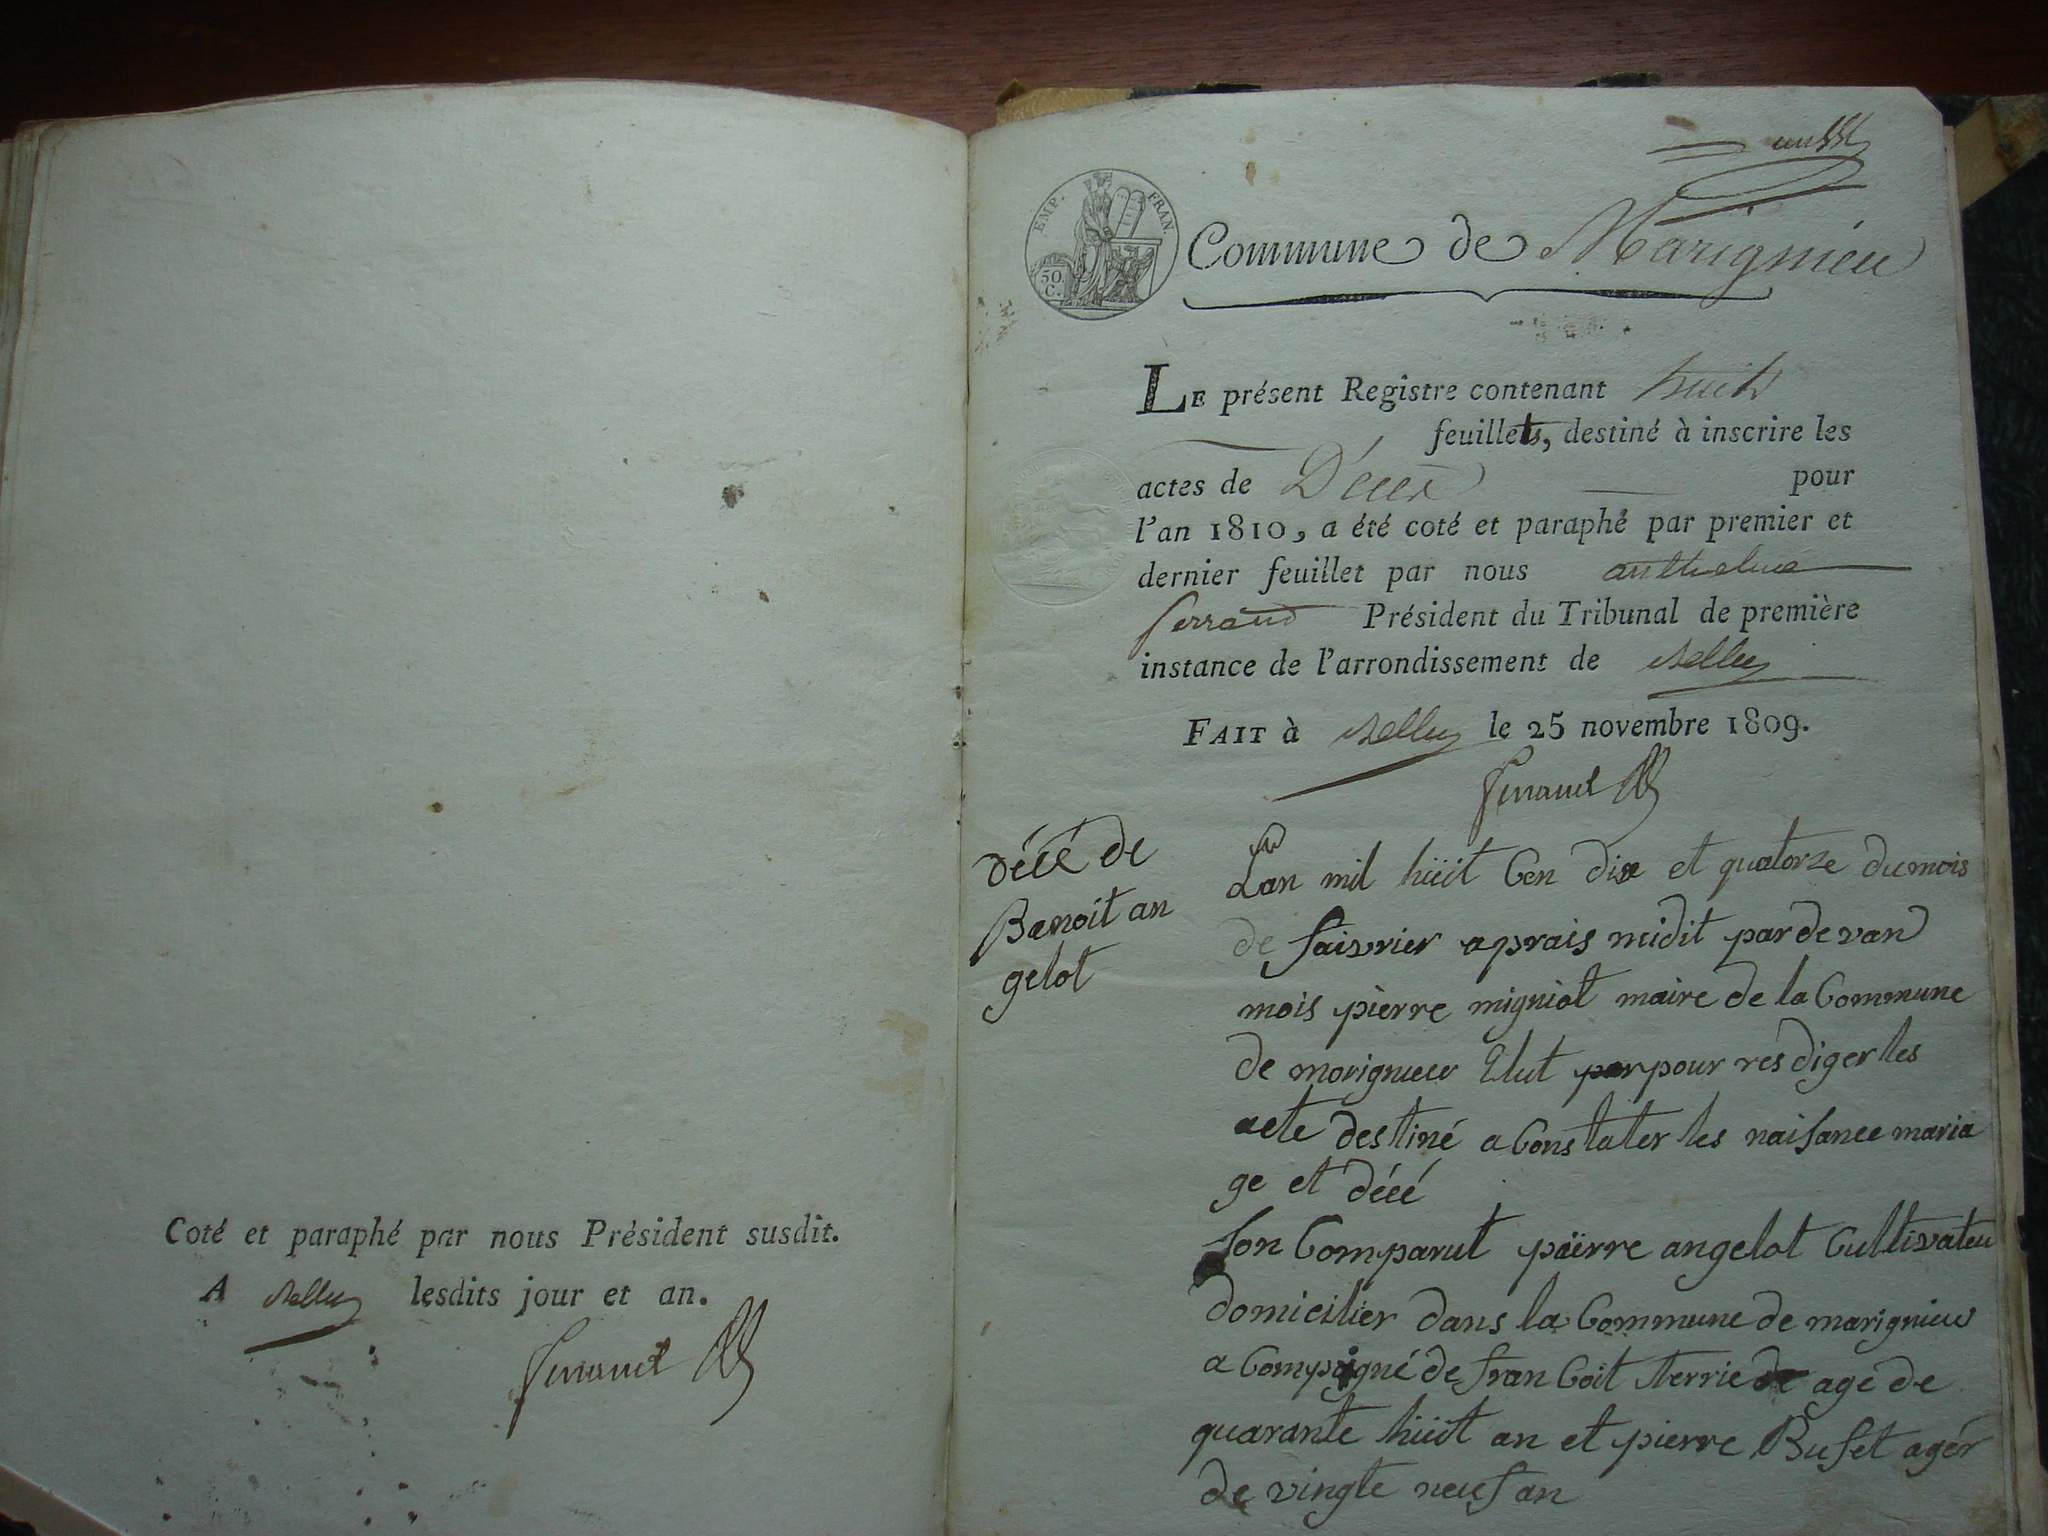 Coté et paraphé par nous Président susdit.
A Belley lesdits jour et an.
ferrand
EMP. FRAN.
50
C.
Commune de Marignieu
LE présent Registre contenant huit
feuillets, destiné à inscrire les
actes de Décès pour
l'an 1810, a été coté et paraphé par premier et
dernier feuillet par nous anthelme
ferrand Président du Tribunal de première
instance de l'arrondissement de Belley
FAIT à Belley le 25 novembre 1809.
ferrand
décé de
Benoit an
gelot
Lan mil huit Cen dix et quatorze du mois
de faivrier aprais midit par de van
mois pierre migniot maire de la Commune
de marignieu Elut par pour res diger les
acte destiné a Constater les naisance maria
ge et décé
son Comparut pierre angelot Cultivateu
domicilier dans la Commune de marignieu
a Compagné de fran Coit agé de
quarante huit an et pierre Bufet ager
de vingte neuf an